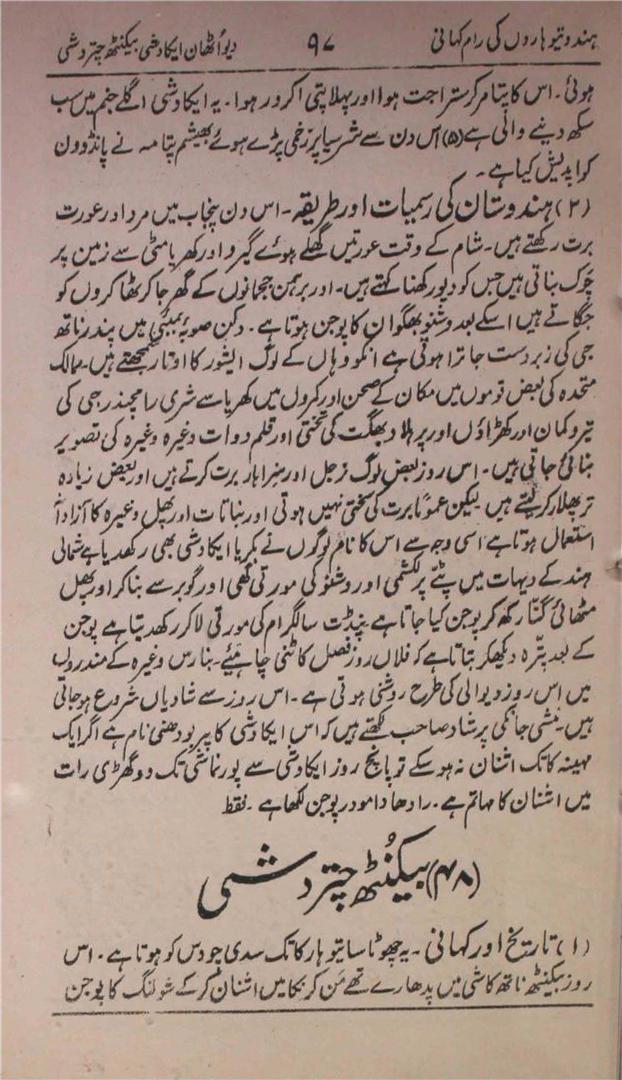 ہندو تیوہاروں کی رام کہانی ۹۷ دیواٹھان ایکادشی بیکنٹھ چتردشی
ہوئی۔ اس کا پتا مرکر ستراجت ہوا اور پہلا پتی اکرور ہوا۔ یہ ایکادشی اگلے جنم میں سب
سکھ دینے والی ہے (۵) اس دن سے شرسیا پر زخمی پڑے ہوئے بھیشم پتامہ نے پانڈوون
کو اپدیش کیا ہے۔
(۲) ہندوستان کی رسمیات اور طریقہ۔ اس دن پنجاب میں مرد اور عورت
برت رکھتے ہیں۔ شام کے وقت عورتیں گھلے ہوئے گیرو اور کھریا مٹی سے زمین پر
چوک بناتی ہیں جس کو دیو رکھنا کہتے ہیں۔ اور برہمن ججمانوں کے گھر جاکر ٹھاکروں کو
جگاتے ہیں اسکے بعد وشنو بھگوان کا پوجن ہوتا ہے۔ دکن صوبہ بمبئی میں پندرناتھ
جی کی زبردست جاترا ہوتی ہے انکو وہاں کے لوگ ایشور کا اوتار سمجھتے ہیں۔ ممالک
متحدہ کی بعض قوموں میں مکان کے صحن اور کمروں میں کھریا سے شری رامچندر جی کی
تیر و کمان اور کھڑاؤں اور پرہلاد بھگت کی تختی اور قلم دوات وغیرہ وغیرہ کی تصویر
بنائی جاتی ہیں۔ اس روز بعض لوگ نرجل اور نراہار برت کرتے ہیں اور بعض زیادہ
تر پھلار کرلیتے ہیں۔ لیکن عموماً برت کی سختی نہیں ہوتی اور نباتات اور پھل وغیرہ کا آزادانہ
استعمال ہوتا ہے اسی وجہ سے اس کا نام لوگوں نے ایکادشی بھی رکھدیا ہے شمالی
ہند کے دیہات میں پٹے پر لکشمی اور وشنو کی مورتی گھی اور گوبر سے بناکر اور پھل
مٹھائی گنا رکھ کر پوجن کیا جاتا ہے پنڈت سالگرام کی مورتی لاکر رکھ دیتا ہے پوجن
کے بعد پترہ دیکھکر بتاتا ہے کہ فلاں روز فصل کاٹنی چاہیئے۔ بنارس وغیرہ کے مندروں
میں اس روز دیوالی کی طرح روشنی ہوتی ہے۔ اس روز سے شادیاں شروع ہوجاتی
ہیں۔ منشی جانکی پرشاد صاحب لکھتے ہیں کہ اس ایکادشی کا پربودھنی نام ہے اگر ایک
مہینہ کاتک اشنان نہ ہوسکے تو پانچ روز ایکادشی سے پورنماشی تک دو گھڑی رات
میں اشنان کا مہاتم ہے۔ رادھا دامودر پوجن لکھا ہے۔ فقط
(۴۸) بیکنٹھ چتردشی
(۱) تاریخ اور کہانی۔ یہ چھوٹا سا تیوہار کاتک سدی چودس کو ہوتا ہے۔ اس
روز بیکنٹھ ناتھ کاشی میں پدھارے تھے من کرنکا میں اشنان کرکے شولنگ کا پوجن